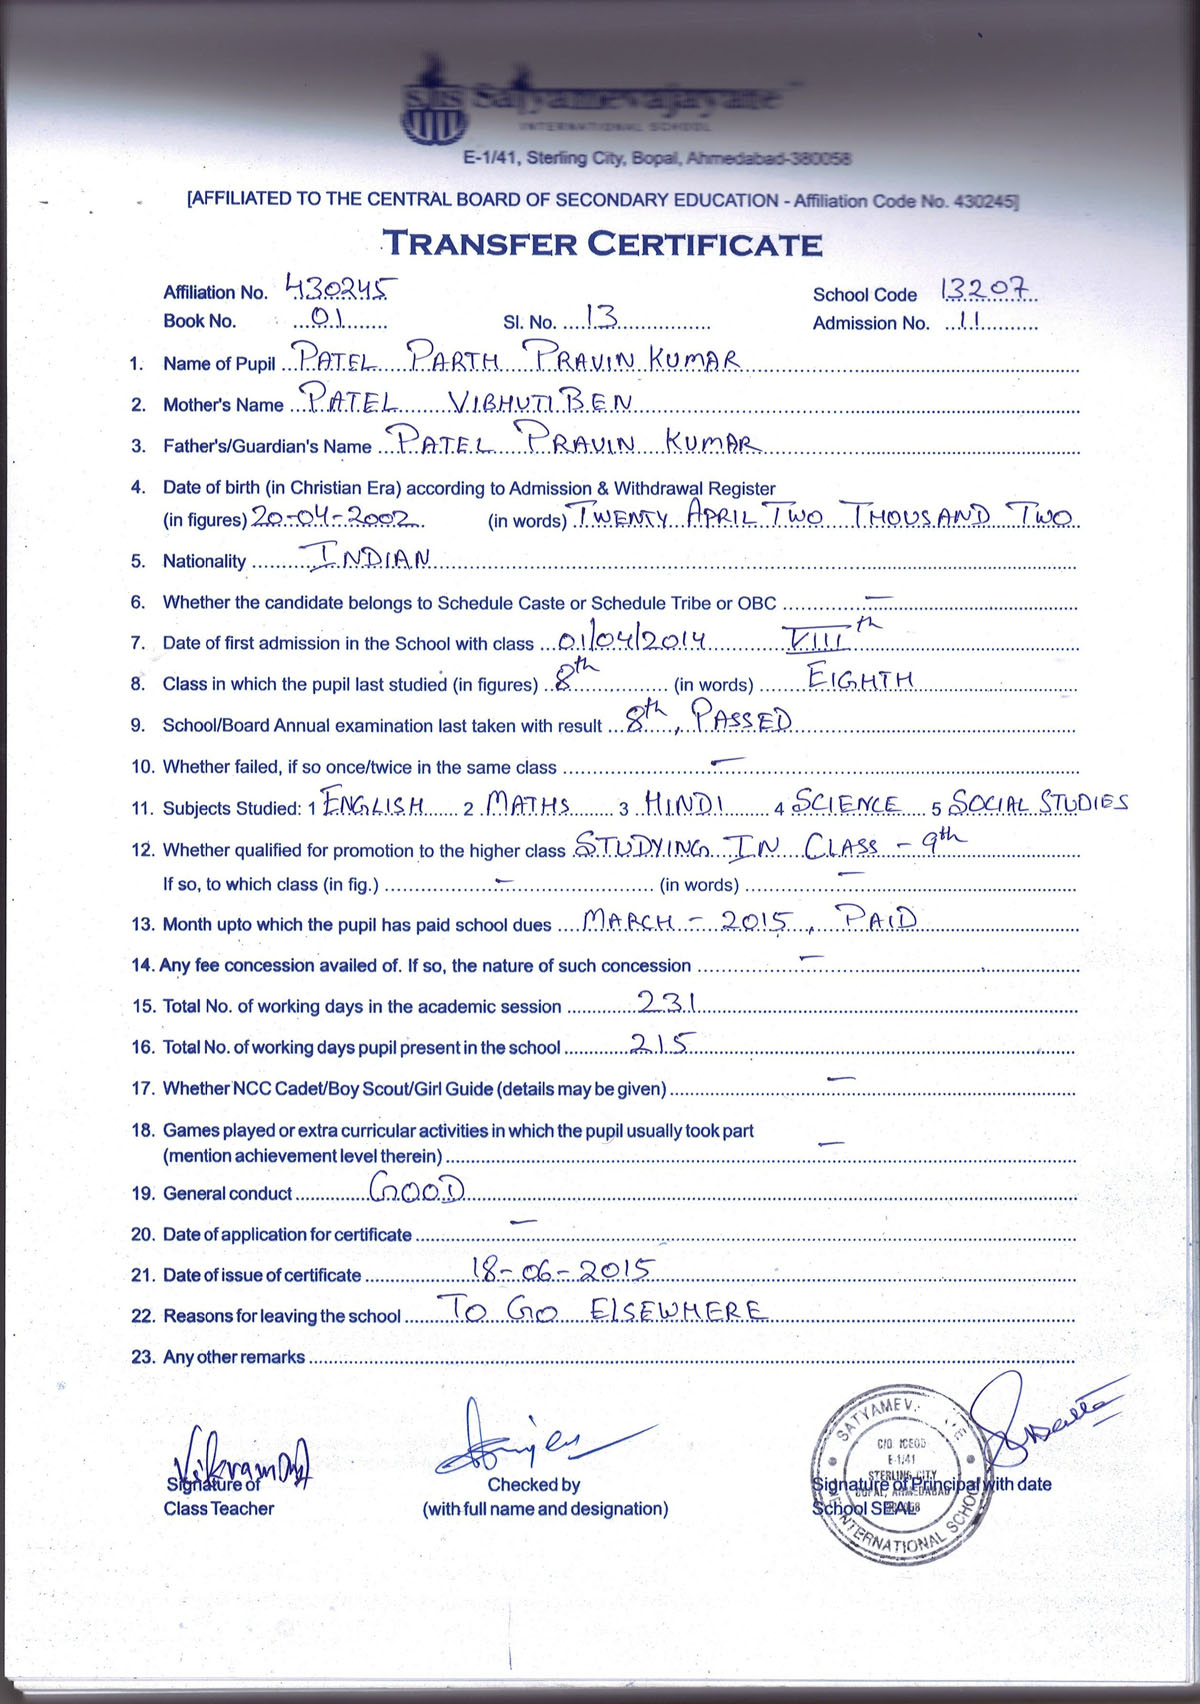 SIS Satyamevajayate
INTERNATIONAL SCHOOL
E-1/41, Sterling City, Bopal, Ahmedabad-380058
[AFFILIATED TO THE CENTRAL BOARD OF SECONDARY EDUCATION - Affiliation Code No. 430245]
TRANSFER CERTIFICATE
Affiliation No. 430245 School Code 13207
Book No. 01 Sl. No. 13 Admission No. 11
1. Name of Pupil PATEL PARTH PRAVIN KUMAR
2. Mother's Name PATEL VIBHUTIBEN
3. Father's/Guardian's Name PATEL PRAVIN KUMAR
4. Date of birth (in Christian Era) according to Admission & Withdrawal Register
(in figures) 20-04-2002 (in words) TWENTY APRIL TWO THOUSAND TWO
5. Nationality INDIAN
6. Whether the candidate belongs to Schedule Caste or Schedule Tribe or OBC —
7. Date of first admission in the School with class 01/04/2014 VIIIth
8. Class in which the pupil last studied (in figures) 8th (in words) EIGHTH
9. School/Board Annual examination last taken with result 8th, PASSED
10. Whether failed, if so once/twice in the same class —
11. Subjects Studied: 1 ENGLISH 2 MATHS 3 HINDI 4 SCIENCE 5 SOCIAL STUDIES
12. Whether qualified for promotion to the higher class STUDYING IN CLASS - 9th
If so, to which class (in fig.) — (in words) —
13. Month upto which the pupil has paid school dues MARCH - 2015, PAID
14. Any fee concession availed of. If so, the nature of such concession —
15. Total No. of working days in the academic session 231
16. Total No. of working days pupil present in the school 215
17. Whether NCC Cadet/Boy Scout/Girl Guide (details may be given) —
18. Games played or extra curricular activities in which the pupil usually took part
(mention achievement level therein) —
19. General conduct GOOD
20. Date of application for certificate —
21. Date of issue of certificate 18-06-2015
22. Reasons for leaving the school TO GO ELSEWHERE
23. Any other remarks
Signature of Checked by Signature of Principal with date
Class Teacher (with full name and designation) School SEAL
SATYAMEV
C/O ICEOD
E-1/41
STERLING CITY
BOPAL, AHMEDABAD
INTERNATIONAL SCHOOL